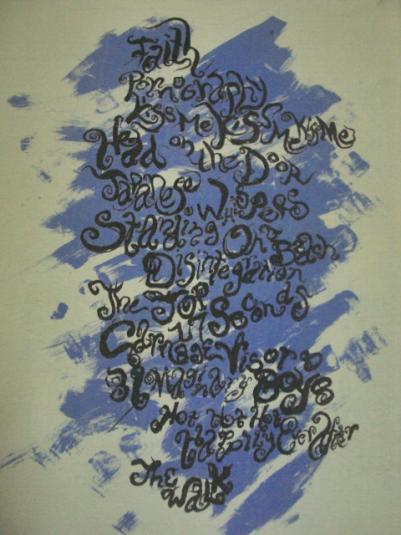 Faith
Pornography
Kiss Me Kiss Me Kiss Me
Head on the Door
Japanese Whispers
Standing On A Beach
Disintegration
The Top
17 Seconds
Carnage Visors
3 Imaginary Boys
Hot Hot Hot
Happily Ever After
The
Walk